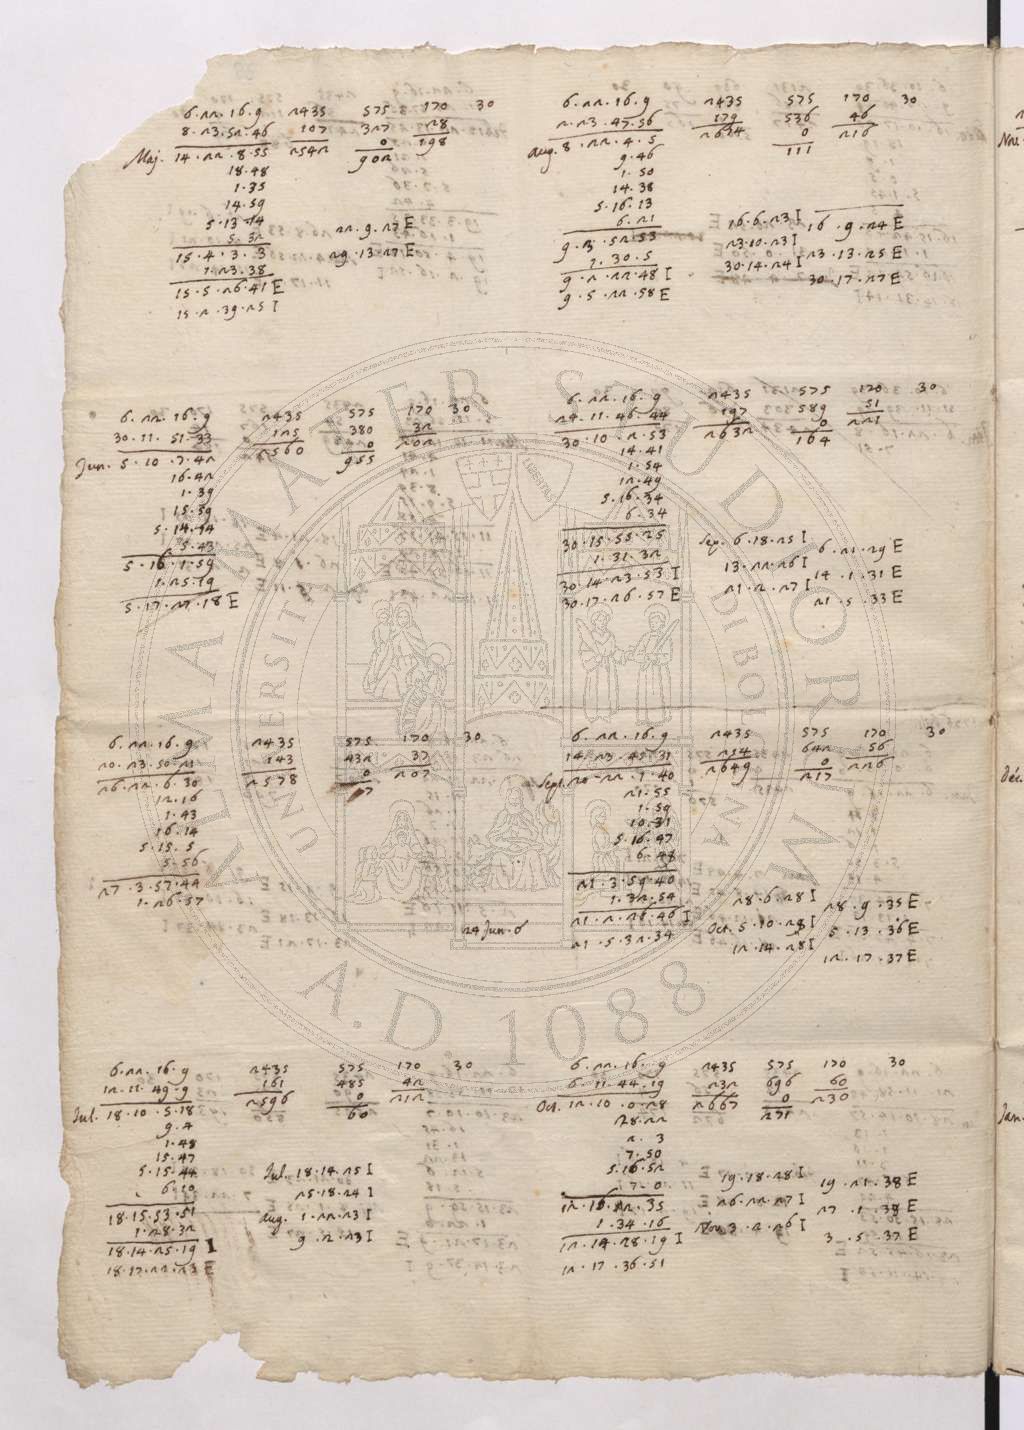 6.22.16.9 2435 575 170 30
8.23.52.46 107 327 28
Maj. 14.22.8.55 2542 0 198
902
18.48
1.35
14.59
5.13.14
5.32
15.4.3.3
1.23.38
15.5.26.41 E
15.2.39.25 I
22.9.27 E
29.13.27 E
6.22.16.9 2435 575 170 30
2.23.47.56 179 536 46
Aug. 8.22.4.5 2614 0 216
111
9.46
1.50
14.38
5.16.13
6.21
9.3.52.53
1.30.5
9.2.22.48 I
9.5.22.58 E
16.6.23 I 16.9.24 E
23.10.23 I 23.13.25 E
30.14.24 I 30.17.27 E
6.22.16.9 2435 575 170 30
30.11.51.33 125 380 32
Jun. 5.10.7.42 2560 0 202
955
16.42
1.39
15.39
5.14.14
5.43
5.16.1.59
1.25.19
5.17.27.18 E
6.22.16.9 2435 575 170 30
24.11.46.44 197 589 51
30.10.2.53 2632 0 221
164
14.41
1.54
12.49
5.16.34
6.34
30.15.55.25
1.31.32
30.14.23.53 I
30.17.26.57 E
Sep. 6.18.25 I 6.21.29 E
13.22.26 I 14.1.31 E
21.2.27 I 21.5.33 E
6.22.16.9 2435 575 170 30
20.23.50.21 143 432 37
26.22.6.30 2578 0 207
7
12.16
1.43
16.14
5.15.5
5.56
27.3.57.44
1.26.57
6.22.16.9 2435 575 170 30
14.23.45.31 214 642 56
Sept. 20.22.1.40 2649 0 226
217
21.55
1.59
10.31
5.16.47
6.48
21.3.59.40
1.32.54
21.2.26.46 I
21.5.32.34
24 Jun. 6
28.6.28 I 28.9.35 E
Oct. 5.10.28 I 5.13.36 E
12.14.28 I 12.17.37 E
6.22.16.9 2435 575 170 30
12.11.49.9 161 485 42
Jul. 18.10.5.18 2596 0 212
60
9.4
1.48
15.47
5.15.44
6.10
18.15.53.51
1.28.32
18.14.25.19 I
18.17.22.23 E
Jul. 18.14.25 I
25.18.24 I
Aug. 1.22.23 I
9.2.23 I
6.22.16.9 2435 575 170 30
6.11.44.19 232 696 60
Oct. 12.10.0.28 2667 0 230
271
28.22
2.3
7.50
5.16.52
7.0
12.16.2.35
1.34.16
12.14.28.19 I
12.17.36.51
19.18.28 I 19.21.38 E
26.22.27 I 27.1.38 E
Nov. 3.2.26 I 3.5.37 E
Nov.
Déc.
Jan.